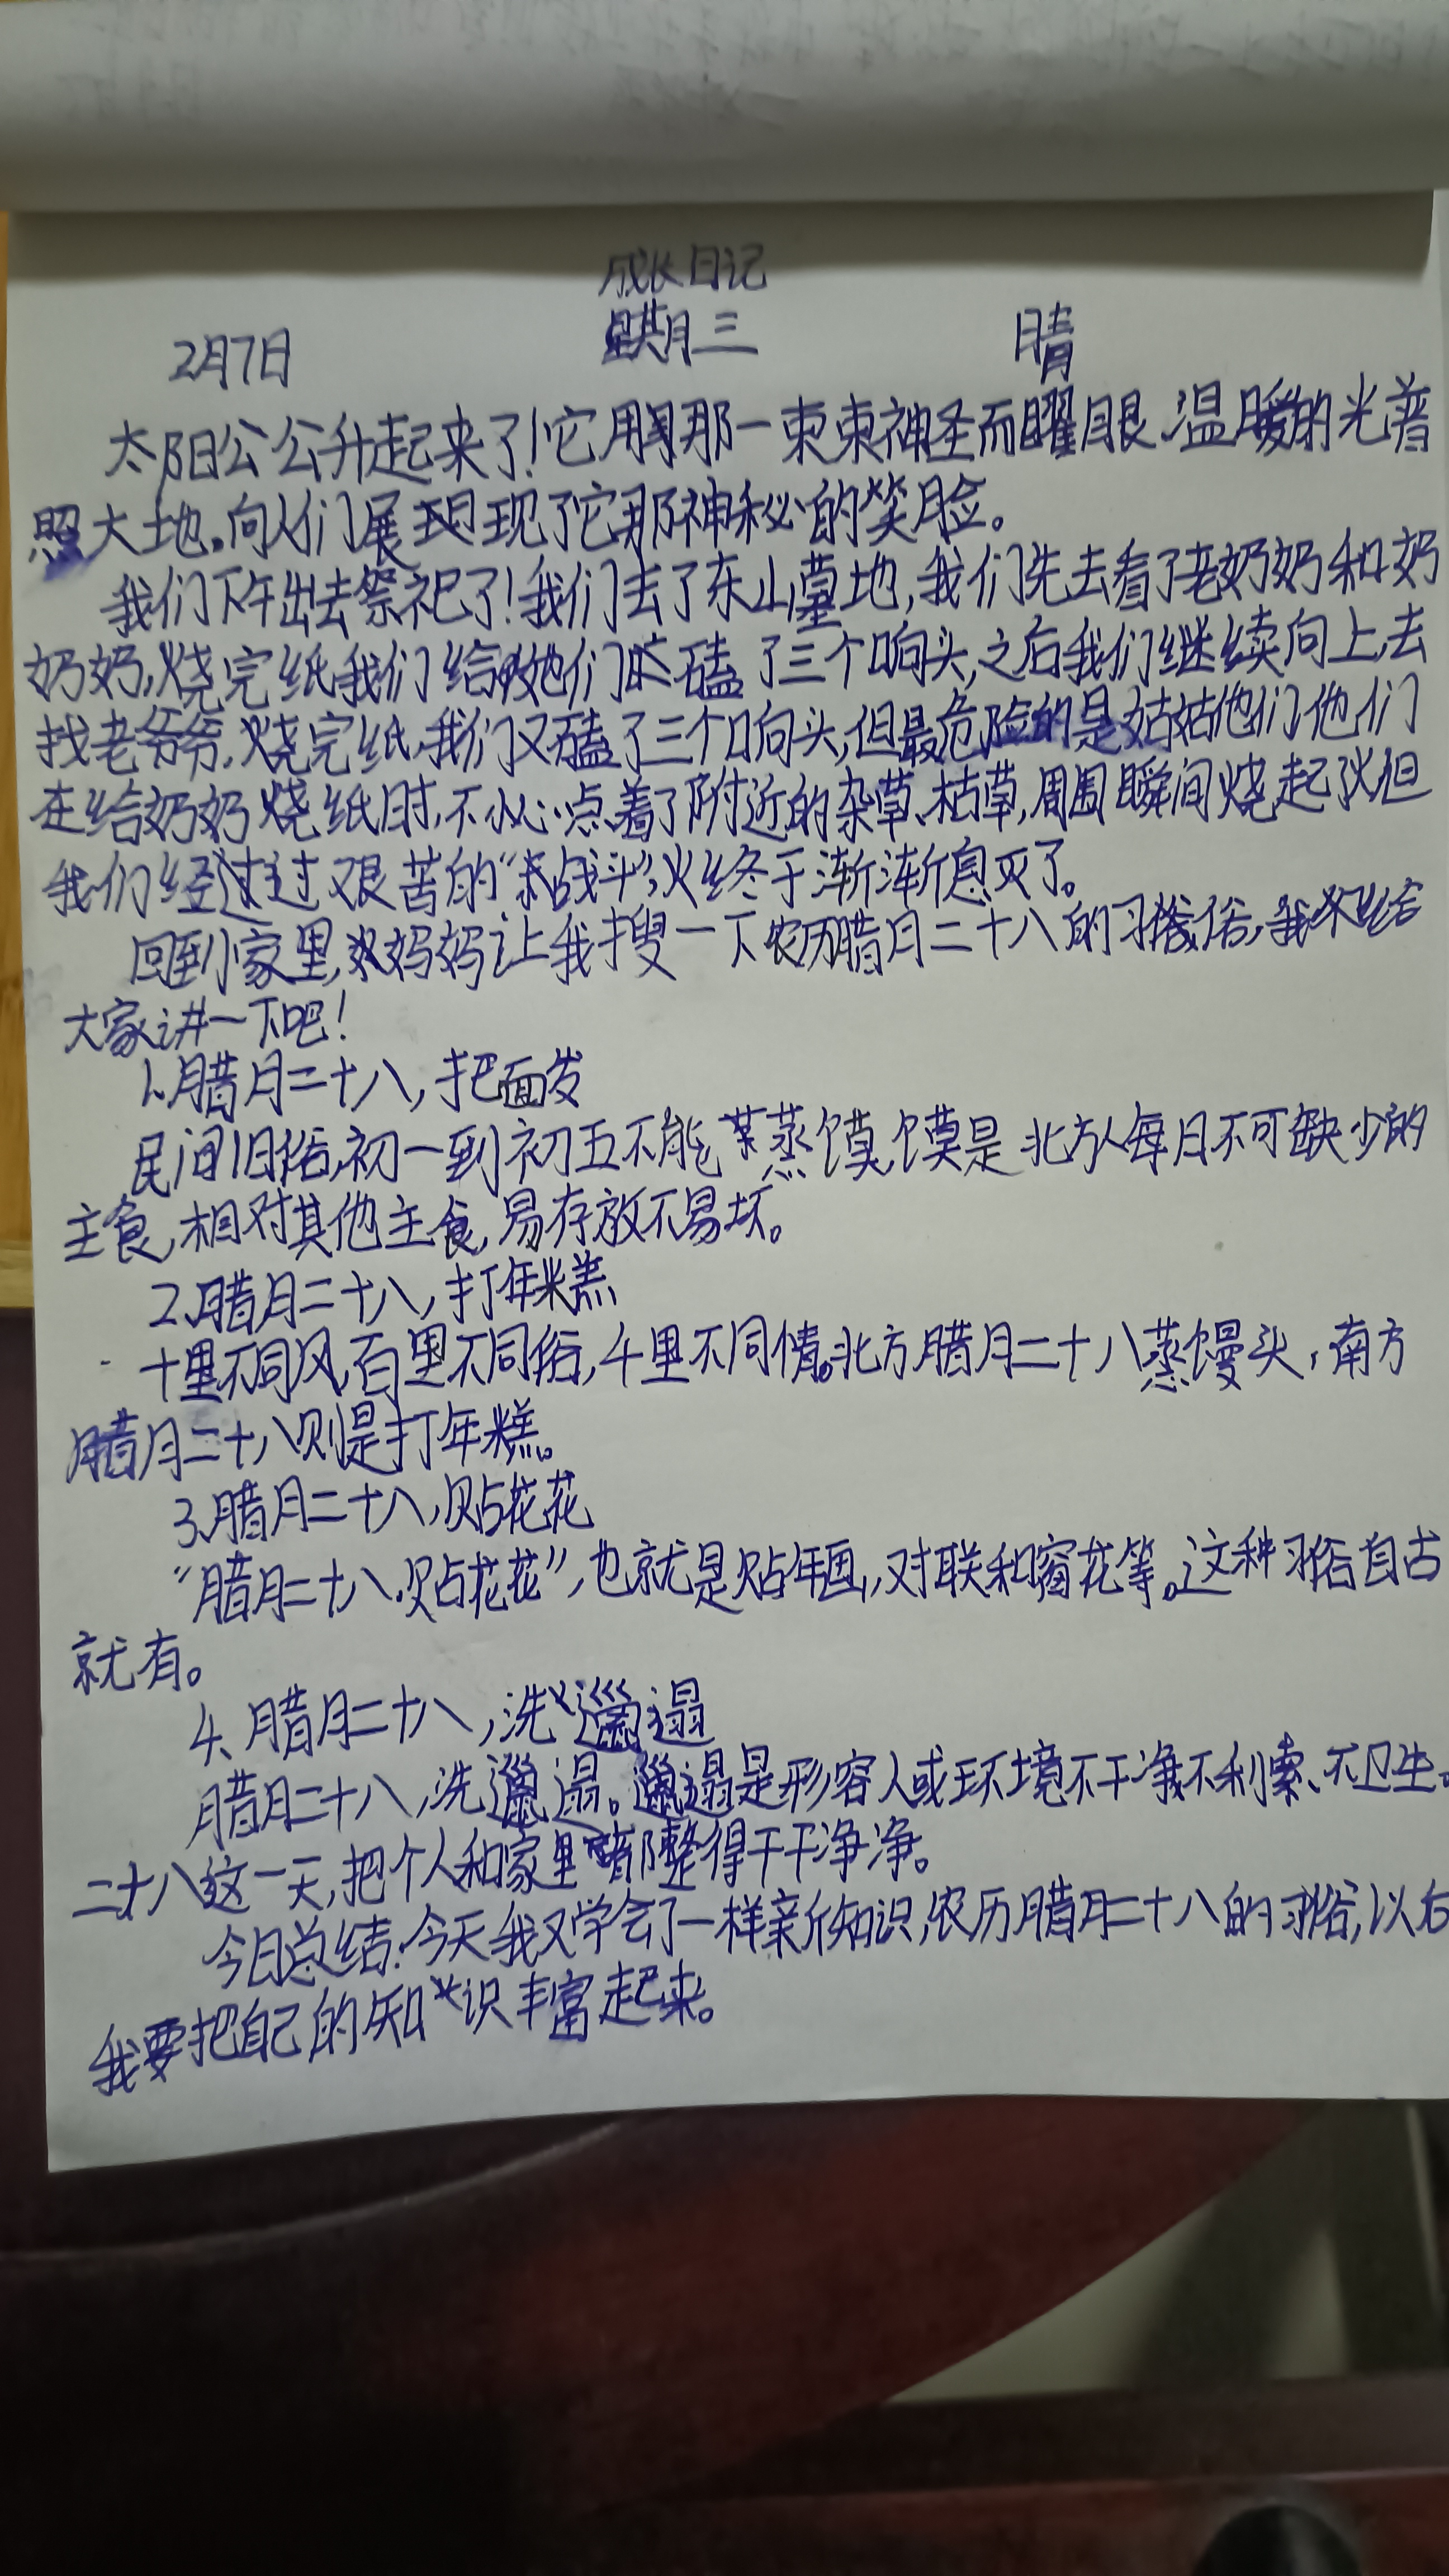 成长日记
2月7日 星期三 晴
太阳公公升起来了!它用那一束束神圣而曜眼、温暖的光普
照大地。向人们展现了它那神秘的笑脸。
我们下午出去祭祀了!我们去了东山墓地,我们先去看了老奶奶和奶
奶奶,烧完纸我们给她们磕了三个响头,之后我们继续向上,去
找老爷爷,烧完纸,我们又磕了三个响头,但最危险的是姑姑他们,他们
在给奶奶烧纸时,不小心点着了附近的杂草、枯草,周围瞬间烧起火,但
我们经过艰苦的“战斗”,火终于渐渐息灭了。
回到小家里,妈妈让我搜一下农历腊月二十八的习俗,我来给
大家讲一下吧!
1、腊月二十八,把面发
民间旧俗,初一到初五不能蒸馍,馍是北方人每日不可缺少的
主食,相对其他主食,易存放不易坏。
2、腊月二十八,打年糕
十里不同风,百里不同俗,千里不同情。北方腊月二十八蒸馒头,南方
腊月二十八则是打年糕。
3、腊月二十八,贴花花
“腊月二十八,贴花花”,也就是贴年画,对联和窗花等。这种习俗自古
就有。
4、腊月二十八,洗邋遢
腊月二十八,洗邋遢。邋遢是形容人或环境不干净、不利索、不卫生。
二十八这一天,把个人和家里都整得干干净净。
今日总结:今天我又学会了一样新知识,农历腊月二十八的习俗,以后
我要把自己的知识丰富起来。